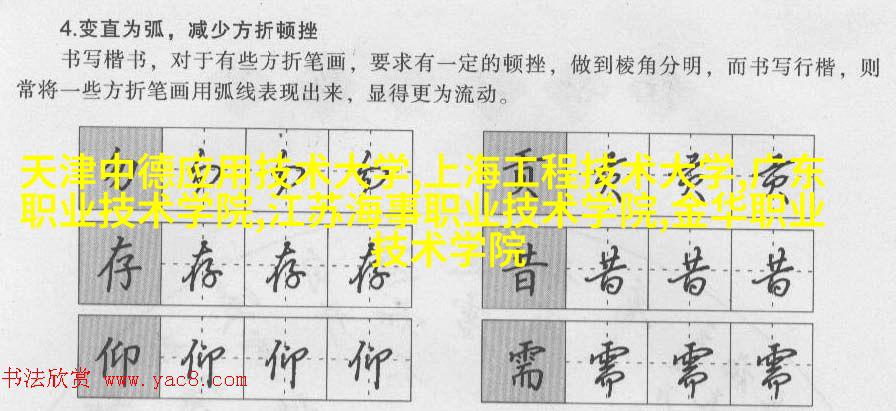 4.变直为弧，减少方折顿挫
书写楷书，对于有些方折笔画，要求有一定的顿挫，做到棱角分明，而书写行楷，则
常将一些方折笔画用弧线表现出来，显得更为流动。
天津中德应用技术大学,上海工程技术大学,广东
职业技术学院,江苏海事职业技术学院,金华职业
技术学院
存 存 存 存 昔 昔 昔 昔
仰 仰 仰 仰 需 需 需 需
书法欣赏 www.yac8.com